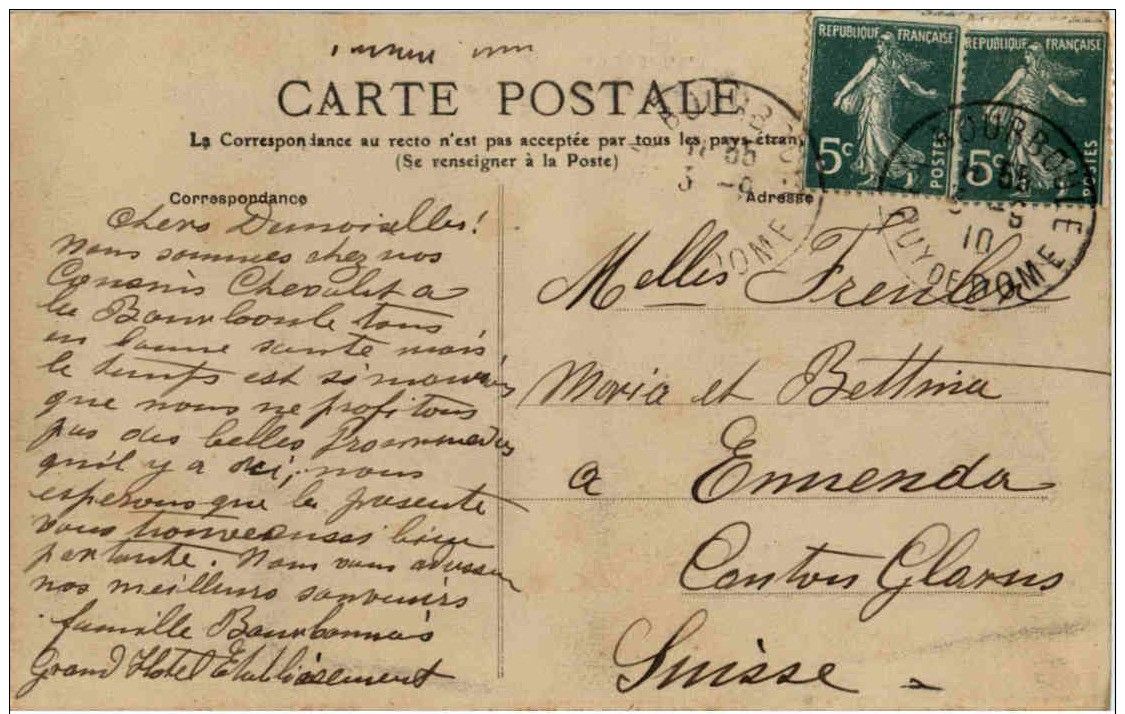 CARTE POSTALE
La Correspondance au recto n'est pas acceptée par tous les pays étran
(Se renseigner à la Poste)
Correspondance
Adresse
REPUBLIQUE FRANÇAISE
5c
POSTES
REPUBLIQUE FRANÇAISE
5c
POSTES
BOURBOULE
PUY DE DOME
10
chers Demoiselles!
nous sommes chez nos
Cousins Chevalet a
la Bourboule tous
en bonne sante mais
le temps est si mauvais
que nous ne profitons
pas des belles Promenades
qu'il y a ici, nous
esperons que la presente
vous trouve aussi bien
portante. Nous vous adressons
nos meilleurs souvenirs
famille Bourbonnais
Grand Hotel Etablissement
Melles Frenler
Maria et Bettina
a Ennenda
Canton Glarus
Suisse